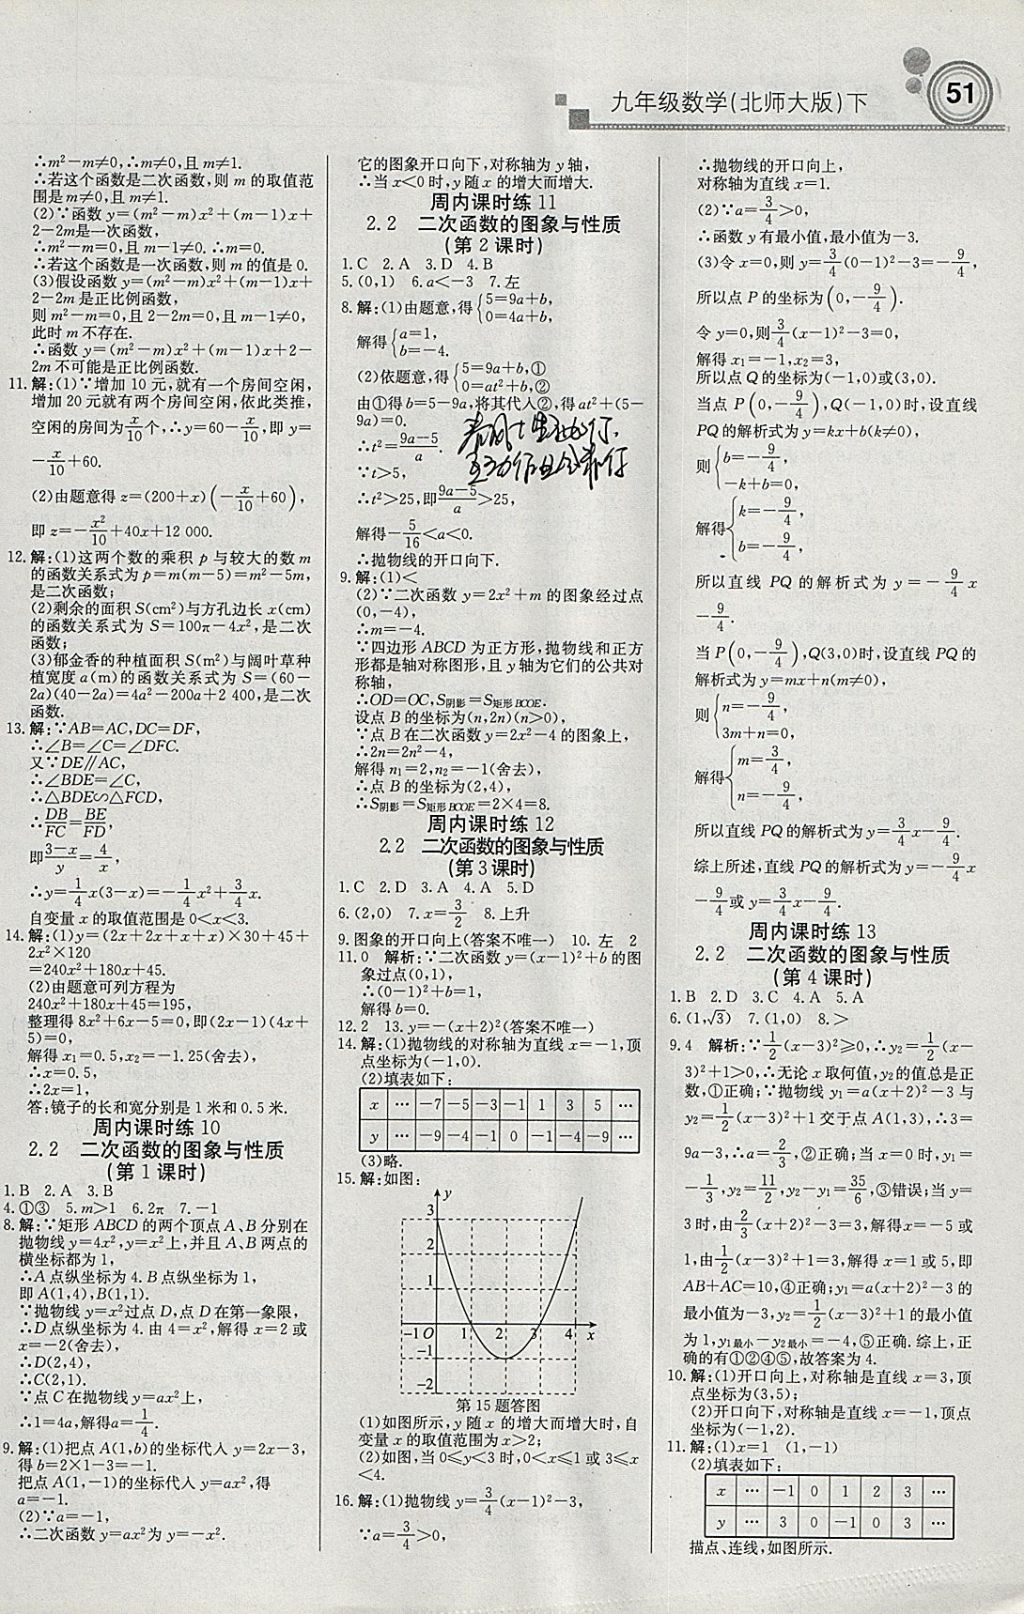 九年级数学(北师大版)下
51
∴m²-m≠0,∴m≠0,且m≠1.
∴若这个函数是二次函数,则m的取值范
围是m≠0,且m≠1.
(2)∵函数y=(m²-m)x²+(m-1)x+
2-2m是一次函数,
∴m²-m=0,且m-1≠0.∴m=0.
∴若这个函数是一次函数,则m的值是0.
(3)假设函数y=(m²-m)x²+(m-1)x+
2-2m是正比例函数,
则m²-m=0,且2-2m=0,且m-1≠0,
此时m不存在.
∴函数y=(m²-m)x²+(m-1)x+2-
2m不可能是正比例函数.
11.解:(1)∵增加10元,就有一个房间空闲,
增加20元就有两个房间空闲,依此类推,
空闲的房间为x/10个,∴y=60-x/10,即y=
-x/10+60.
(2)由题意得z=(200+x)(-x/10+60),
即z=-x²/10+40x+12 000.
12.解:(1)这两个数的乘积p与较大的数m
的函数关系式为p=m(m-5)=m²-5m,
是二次函数;
(2)剩余的面积S(cm²)与方孔边长x(cm)
的函数关系式为S=100π-4x²,是二次
函数;
(3)郁金香的种植面积S(m²)与阔叶草种
植宽度a(m)的函数关系式为S=(60-
2a)(40-2a)=4a²-200a+2 400,是二次
函数.
13.解:∵AB=AC,DC=DF,
∴∠B=∠C=∠DFC.
又∵DE∥AC,
∴∠BDE=∠C,
∴△BDE∽△FCD,
∴DB/FC=BE/FD,
即(3-x)/y=4/x,
∴y=1/4x(3-x)=-1/4x²+3/4x.
自变量x的取值范围是0<x<3.
14.解:(1)y=(2x+2x+x+x)×30+45+
2x²×120
=240x²+180x+45.
(2)由题意可列方程为
240x²+180x+45=195,
整理得8x²+6x-5=0,即(2x-1)(4x+
5)=0,
解得x₁=0.5,x₂=-1.25(舍去),
∴x=0.5,
∴2x=1,
答:镜子的长和宽分别是1米和0.5米.
周内课时练10
2.2 二次函数的图象与性质
(第1课时)
1.B 2.A 3.B
4.①③ 5.m>1 6.2π 7.-1
8.解:∵矩形ABCD的两个顶点A、B分别在
抛物线y=4x²,y=x²上,并且A、B两点的
横坐标都为1,
∴A点纵坐标为4.B点纵坐标为1,
即A(1,4),B(1,1).
∵抛物线y=x²过点D,点D在第一象限,
∴D点纵坐标为4.由4=x²,解得x=2或
x=-2(舍去),
∴D(2,4),
∴C(2,1).
∵点C在抛物线y=ax²上,
∴1=4a,解得a=1/4.
9.解:(1)把点A(1,b)的坐标代入y=2x-3,
得b=2×1-3=-1.
把点A(1,-1)的坐标代入y=ax²,得
a=-1.
(2)∵a=-1,
∴二次函数y=ax²为y=-x².
它的图象开口向下,对称轴为y轴,
∴当x<0时,y随x的增大而增大.
周内课时练11
2.2 二次函数的图象与性质
(第2课时)
1.C 2.A 3.D 4.B
5.(0,1) 6.a<-3 7.左
8.解:(1)由题意,得{5=9a+b,
0=4a+b,
解得{a=1,
b=-4.
(2)依题意,得{5=9a+b,①
0=at²+b,②
由①得b=5-9a,将其代入②,得at²+(5-
9a)=0.
∴t²=(9a-5)/a.
∵t>5,
∴t²>25,即(9a-5)/a>25,
解得-5/16<a<0.
∴抛物线的开口向下.
9.解:(1)<
(2)∵二次函数y=2x²+m的图象经过点
(0,-4),
∴m=-4.
∵四边形ABCD为正方形,抛物线和正方
形都是轴对称图形,且y轴为它们的公共对
称轴,
∴OD=OC,S阴影=S矩形BCOE.
设点B的坐标为(n,2n)(n>0),
∵点B在二次函数y=2x²-4的图象上,
∴2n=2n²-4,
解得n₁=2,n₂=-1(舍去),
∴点B的坐标为(2,4),
∴S阴影=S矩形BCOE=2×4=8.
周内课时练12
2.2 二次函数的图象与性质
(第3课时)
1.C 2.D 3.A 4.A 5.D
6.(2,0) 7.x=3/2 8.上升
9.图象的开口向上(答案不唯一) 10.左 2
11.0 解析:∵二次函数y=(x-1)²+b的图
象过点(0,1),
∴(0-1)²+b=1,
解得b=0.
12.2 13.y=-(x+2)²(答案不唯一)
14.解:(1)抛物线的对称轴为直线x=-1,顶
点坐标为(-1,0).
(2)填表如下:
x … -7 -5 -3 -1 1 3 5 …
y … -9 -4 -1 0 -1 -4 -9 …
(3)略.
15.解:如图:
y
3
2
1
-1 O 1 2 3 4 x
-1
-2
第15题答图
(1)如图所示,y随x的增大而增大时,自
变量x的取值范围为x>2;
(2)如图,当0≤y<3时,0<x≤1或3≤x
<4.
16.解:(1)抛物线y=3/4(x-1)²-3,
∵a=3/4>0,
∴抛物线的开口向上,
对称轴为直线x=1.
(2)∵a=3/4>0,
∴函数y有最小值,最小值为-3.
(3)令x=0,则y=3/4(0-1)²-3=-9/4,
所以点P的坐标为(0,-9/4).
令y=0,则3/4(x-1)²-3=0,
解得x₁=-1,x₂=3,
所以点Q的坐标为(-1,0)或(3,0).
当点P(0,-9/4),Q(-1,0)时,设直线
PQ的解析式为y=kx+b(k≠0),
则{b=-9/4,
-k+b=0,
解得{k=-9/4,
b=-9/4,
所以直线PQ的解析式为y=-9/4x
-9/4.
当P(0,-9/4),Q(3,0)时,设直线PQ的
解析式为y=mx+n(m≠0),
则{n=-9/4,
3m+n=0,
解得{m=3/4,
n=-9/4,
所以直线PQ的解析式为y=3/4x-9/4.
综上所述,直线PQ的解析式为y=-9/4x
-9/4或y=3/4x-9/4.
周内课时练13
2.2 二次函数的图象与性质
(第4课时)
1.B 2.D 3.C 4.A 5.A
6.(1,√3) 7.(1,0) 8.>
9.4 解析:∵1/2(x-3)²≥0,∴y₂=1/2(x-
3)²+1>0,∴无论x取何值,y₂的值总是正
数,①正确;∵抛物线y₁=a(x+2)²-3与
y₂=1/2(x-3)²+1交于点A(1,3),∴3=
9a-3,∴a=2/3,②正确;当x=0时,y₁=
-1/3,y₂=11/2,y₂-y₁=35/6,③错误;当y=
3时,由2/3(x+2)²-3=3,解得x=-5或
1,由1/2(x-3)²+1=3,解得x=1或5,即
AB+AC=10,④正确;y₁=a(x+2)²-3的
最小值为-3,y₂=1/2(x-3)²+1的最小值
为1,y₁最小-y₂最小=-4,⑤正确.综上,正
确的有①②④⑤,故答案为4.
10.解:(1)开口向上,对称轴是直线x=3,顶
点坐标为(3,5);
(2)开口向下,对称轴是直线x=-1,顶点
坐标为(-1,2).
11.解:(1)x=1 (1,-1)
(2)填表如下:
x … -1 0 1 2 3 …
y … 3 0 -1 0 3 …
描点、连线,如图所示.